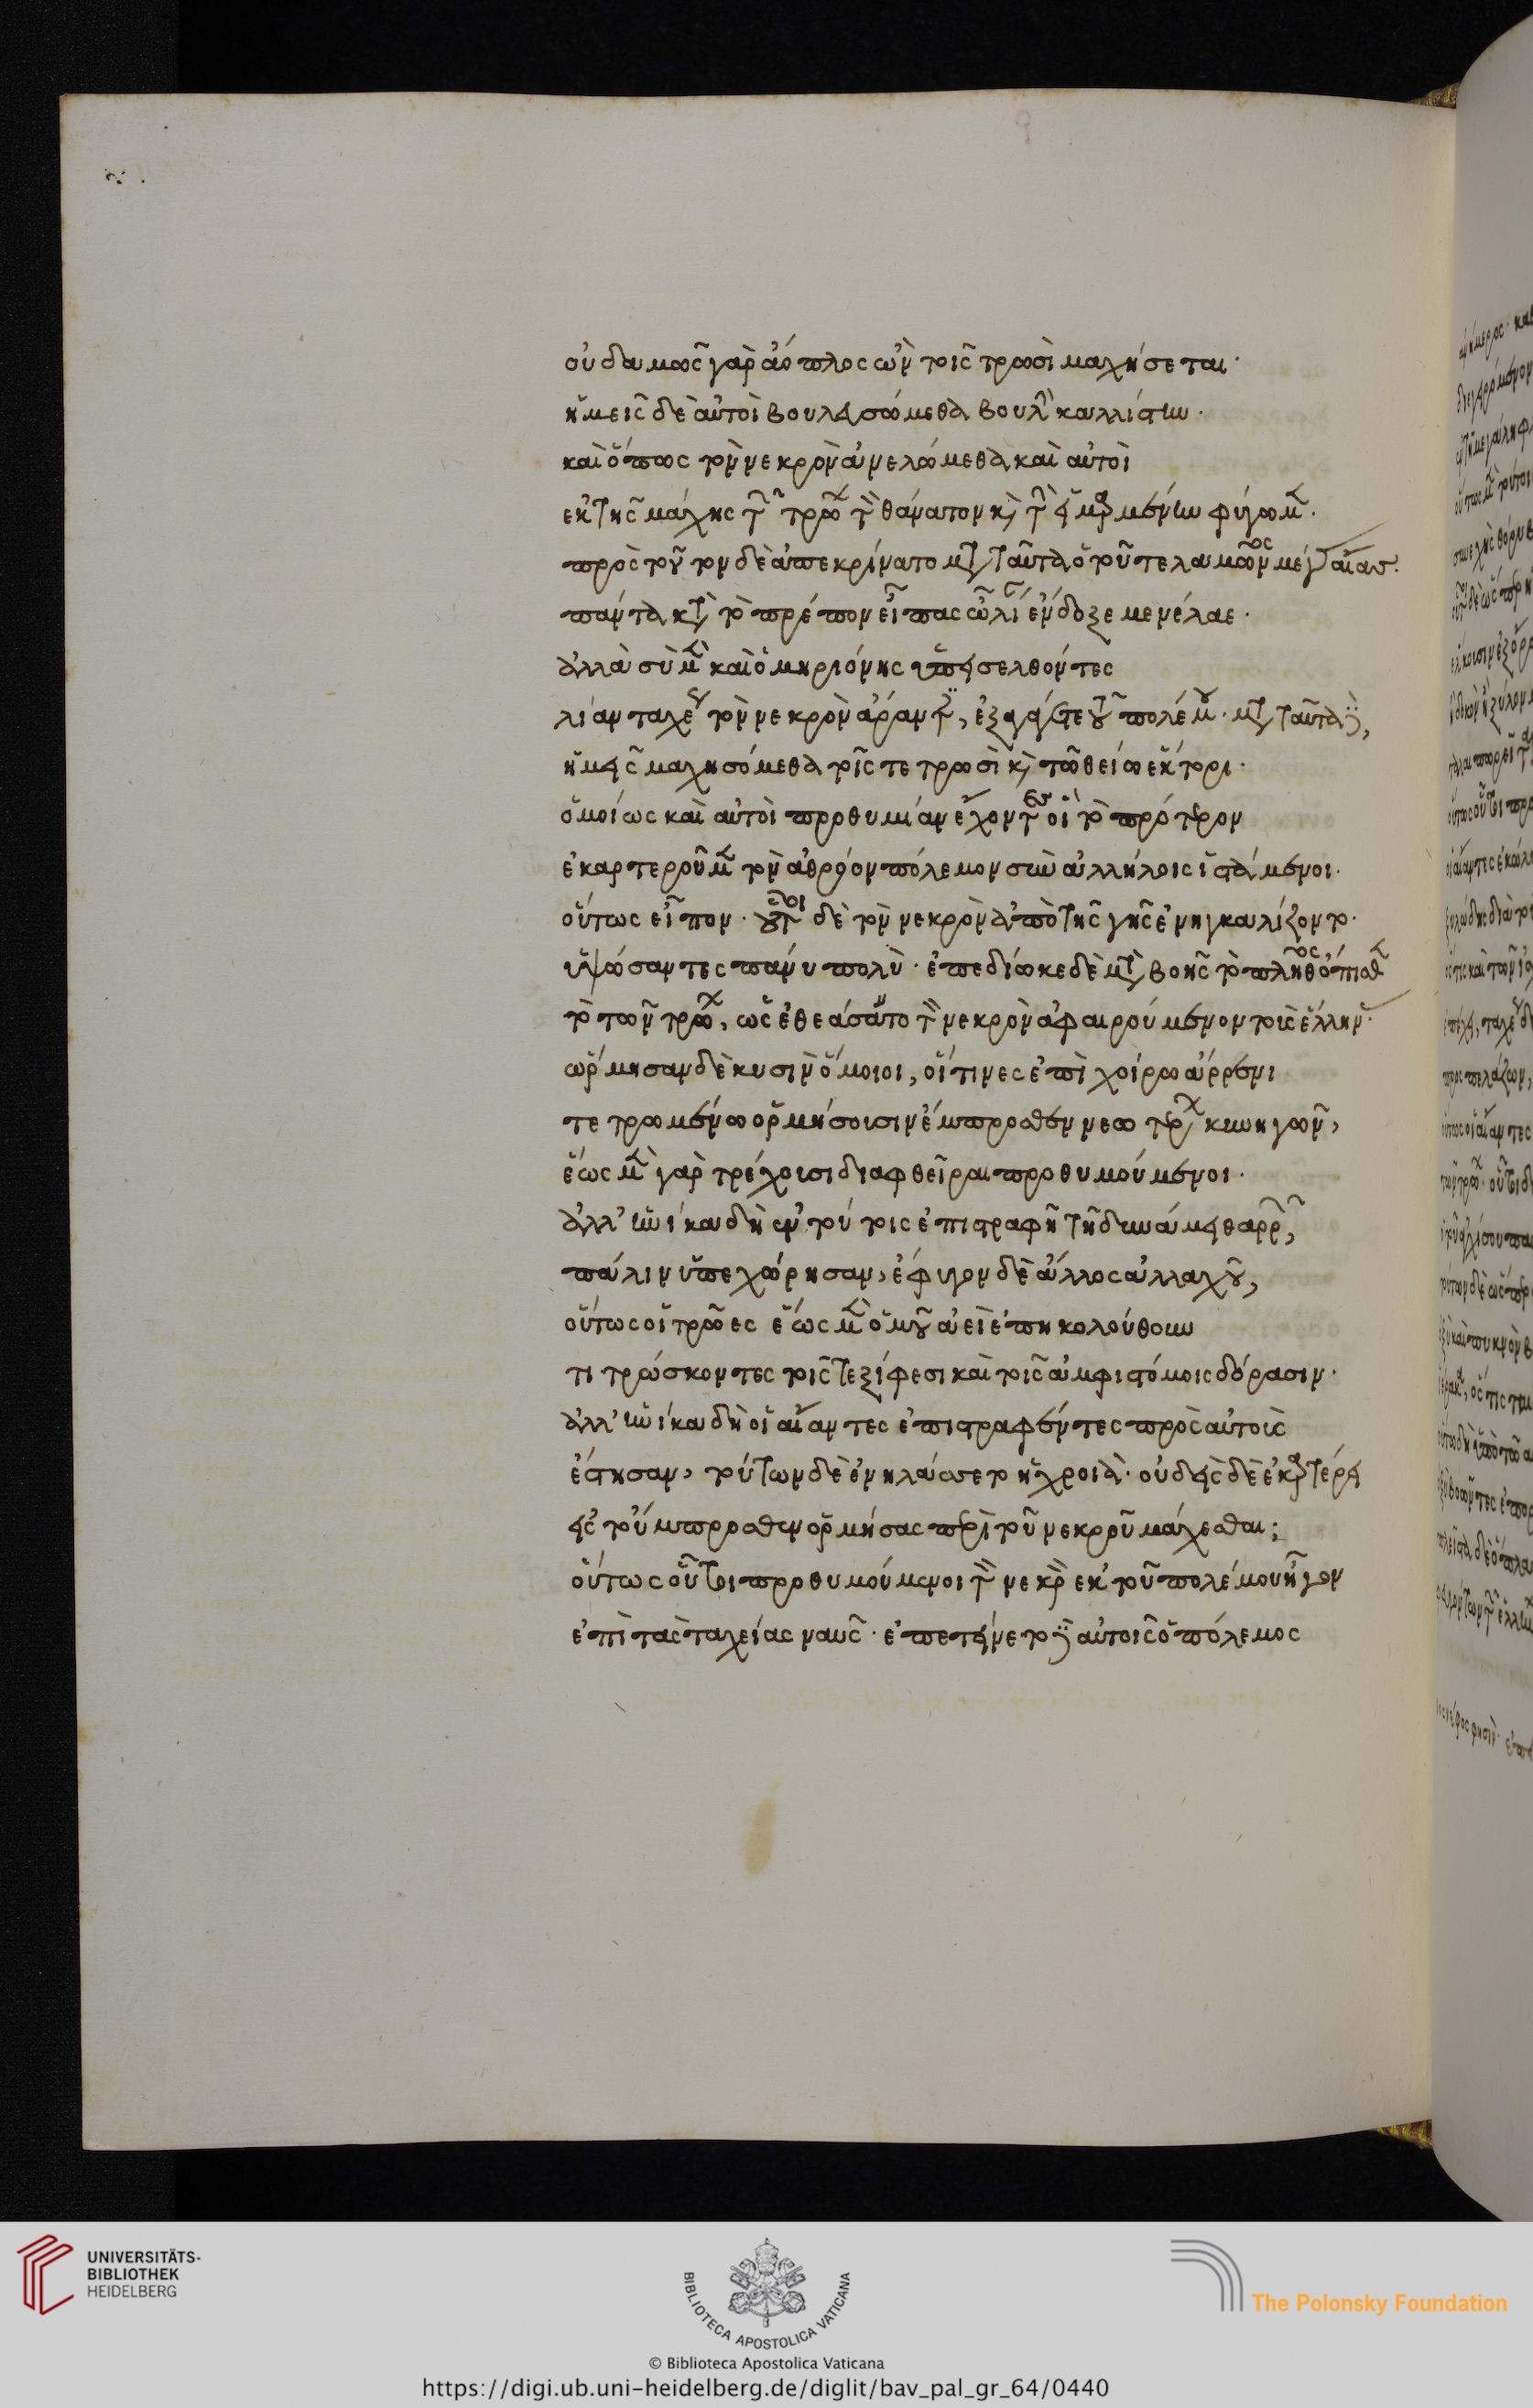 οὐδαμῶς γὰρ ἄοπλος ὢν τοῖς τρωσὶ μαχήσεται·
ἡμεῖς δὲ αὐτοὶ βουλευσώμεθα βουλὴν καλλίστην·
καὶ ὅπως τὸν νεκρὸν ἀνελώμεθα καὶ αὐτοὶ
ἐκ τῆς μάχης τῶν τρώων τὸν θάνατον καὶ τὴν εἱμαρμένην φύγωμεν·
πρὸς τοῦτον δὲ ἀπεκρίνατο μετὰ ταῦτα ὁ τοῦ τελαμῶνος μέγας αἴας·
πάντα κατὰ τὸ πρέπον εἶπας ὦ λίαν ἔνδοξε μενέλαε·
ἀλλὰ σὺ μὲν καὶ ὁ μηριόνης ὑπεισελθόντες
λίαν ταχέως τὸν νεκρὸν ἄραντες, ἐξαγάγετε τοῦ πολέμου· μετὰ ταῦτα δὲ,
ἡμεῖς μαχησόμεθα τοῖς τε τρωσὶ καὶ τῷ θείῳ ἕκτορι·
ὁμοίως καὶ αὐτοὶ προθυμίαν ἔχοντες οἳ τὸ πρότερον
ἐκαρτεροῦμεν τὸν ἀθρόον πόλεμον σὺν ἀλλήλοις ἱστάμενοι·
οὕτως εἶπον· οὗτοι δὲ τὸν νεκρὸν ἀπὸ τῆς γῆς ἐνηγκαλίζοντο·
ὑψώσαντες πάνυ πολύ· ἐπεδίωκε δὲ μετὰ βοῆς τὸ πλῆθος ὄπισθεν
τὸ τῶν τρώων, ὡς ἐθεάσαντο τὸν νεκρὸν ἀφαιρούμενον τοὺς ἕλληνας·
ὥρμησαν δὲ κυσὶν ὅμοιοι, οἵτινες ἐπὶ χοίρῳ ἄρρενι
τετρωμένῳ ὁρμήσουσιν ἔμπροσθεν νεωτέρων κυνηγῶν,
ἕως μὲν γὰρ τρέχουσι διαφθεῖραι προθυμούμενοι·
ἀλλ' ἡνίκα δὴ ἐν τούτοις ἐπιστραφῇ τῇ δυνάμει θαρρῶν,
πάλιν ὑπεχώρησαν, ἔφυγον δὲ ἄλλος ἀλλαχοῦ,
οὕτως οἱ τρῶες ἕως μὲν ὁμοῦ ἀεὶ ἐπηκολούθουν
τιτρώσκοντες τοῖς τε ξίφεσι καὶ τοῖς ἀμφιστόμοις δόρασιν·
ἀλλ' ἡνίκα δὴ οἱ αἴαντες ἐπιστραφέντες πρὸς αὐτοὺς
ἔστησαν, τούτων δὲ ἐνηλλάσσετο ἡ χροιά· οὐδεὶς δὲ ἐκαρτέρει
εἰς τοὔμπροσθεν ὁρμήσας περὶ τοῦ νεκροῦ μάχεσθαι;
οὕτως οὗτοι προθυμούμενοι τὸν νεκρὸν ἐκ τοῦ πολέμου ἦγον
ἐπὶ τὰς ταχείας ναῦς· ἐπετείνετο δὲ αὐτοῖς ὁ πόλεμος
UNIVERSITÄTS-
BIBLIOTHEK
HEIDELBERG
BIBLIOTECA APOSTOLICA VATICANA
The Polonsky Foundation
© Biblioteca Apostolica Vaticana
https://digi.ub.uni-heidelberg.de/diglit/bav_pal_gr_64/0440